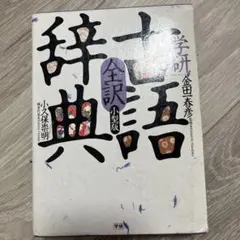 学研
古語
辞典
全訳
小型版
金田一春彦
小久保崇明
学研